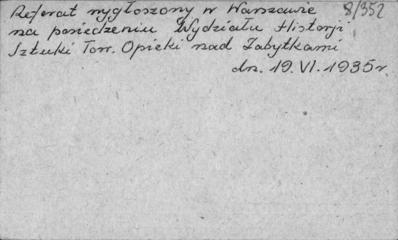 Referat wygłoszony w Warszawie 8/352
na posiedzeniu Wydziału Historji
Sztuki Tow. Opieki nad Zabytkami
dn. 19.VI.1935r.